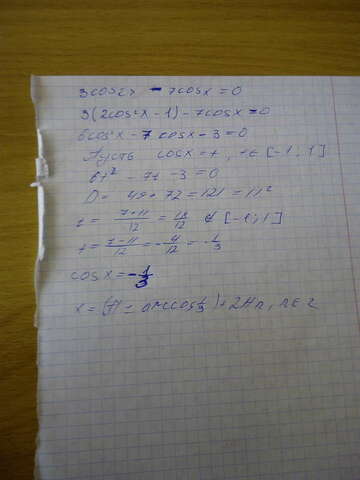 3cos2x - 7cosx = 0
3(2cos²x - 1) - 7cosx = 0
6cos²x - 7cosx - 3 = 0
Пусть cosx = t, t ∈ [-1; 1]
6t² - 7t - 3 = 0
D = 49 + 72 = 121 = 11²
t = \frac{7+11}{12} = \frac{18}{12} ∉ [-1; 1]
t = \frac{7-11}{12} = -\frac{4}{12} = -\frac{1}{3}
cosx = -\frac{1}{3}
x = (π - arccos\frac{1}{3}) + 2πn, n ∈ z